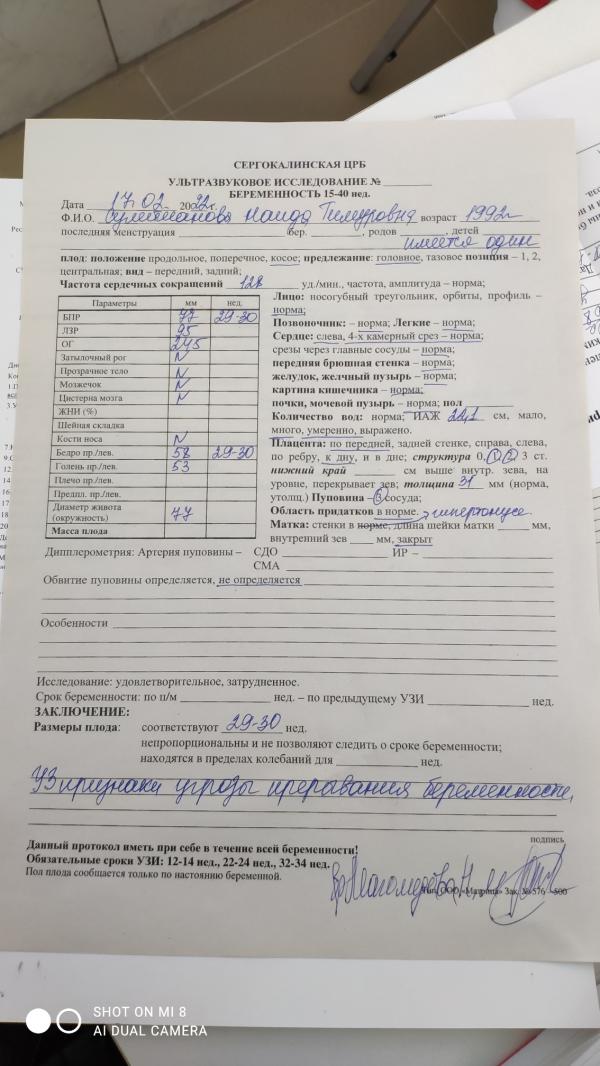 СЕРГОКАЛИНСКАЯ ЦРБ
УЛЬТРАЗВУКОВОЕ ИССЛЕДОВАНИЕ № ________
БЕРЕМЕННОСТЬ 15-40 нед.
Дата 17.02 2022г.
Ф.И.О. Сулейманова Наида Тимуровна возраст 1992г
последняя менструация ________ бер. ____, родов ____, детей
имеется один
плод: положение продольное, поперечное, косое; предлежание: головное, тазовое позиция – 1, 2,
центральная; вид – передний, задний;
Частота сердечных сокращений 128 уд./мин., частота, амплитуда – норма;
Параметры мм нед.
БПР 77 29-30
ЛЗР 95
ОГ 275
Затылочный рог N
Прозрачное тело N
Мозжечок N
Цистерна мозга N
ЖНИ (%)
Шейная складка
Кости носа N
Бедро пр/лев. 58 29-30
Голень пр/лев. 53
Плечо пр/лев.
Предпл. пр/лев.
Диаметр живота (окружность) 77
Масса плода
Лицо: носогубный треугольник, орбиты, профиль –
норма;
Позвоночник: – норма; Легкие – норма;
Сердце: слева, 4-х камерный срез – норма;
срезы через главные сосуды – норма;
передняя брюшная стенка – норма;
желудок, желчный пузырь – норма;
картина кишечника – норма;
почки, мочевой пузырь – норма; пол ________
Количество вод: норма; ИАЖ 221 см, мало,
много, умеренно, выражено.
Плацента: по передней, задней стенке, справа, слева,
по ребру, к дну, и в дне; структура 0, 1, 2, 3 ст.
нижний край ______ см выше внутр. зева, на
уровне, перекрывает зев; толщина 31 мм (норма,
утолщ.) Пуповина – 3 сосуда;
Область придатков в норме. гипертонусе.
Матка: стенки в норме, длина шейки матки ____ мм,
внутренний зев ____ мм, закрыт
Дипплерометрия: Артерия пуповины – СДО ________ ИР – ________
СМА ________
Обвитие пуповины определяется, не определяется
Особенности
Исследование: удовлетворительное, затрудненное.
Срок беременности: по п/м ________ нед. – по предыдущему УЗИ ________ нед.
ЗАКЛЮЧЕНИЕ:
Размеры плода: соответствуют 29-30 нед.
непропорциональны и не позволяют следить о сроке беременности;
находятся в пределах колебаний для ________ нед.
УЗ признаки угрозы прерывания беременности,
подпись
Данный протокол иметь при себе в течение всей беременности!
Обязательные сроки УЗИ: 12-14 нед., 22-24 нед., 32-34 нед.
Пол плода сообщается только по настоянию беременной.
вр Магомедова
Тип. ООО «Матрица» Зак. № 576 – 500
SHOT ON MI 8
AI DUAL CAMERA